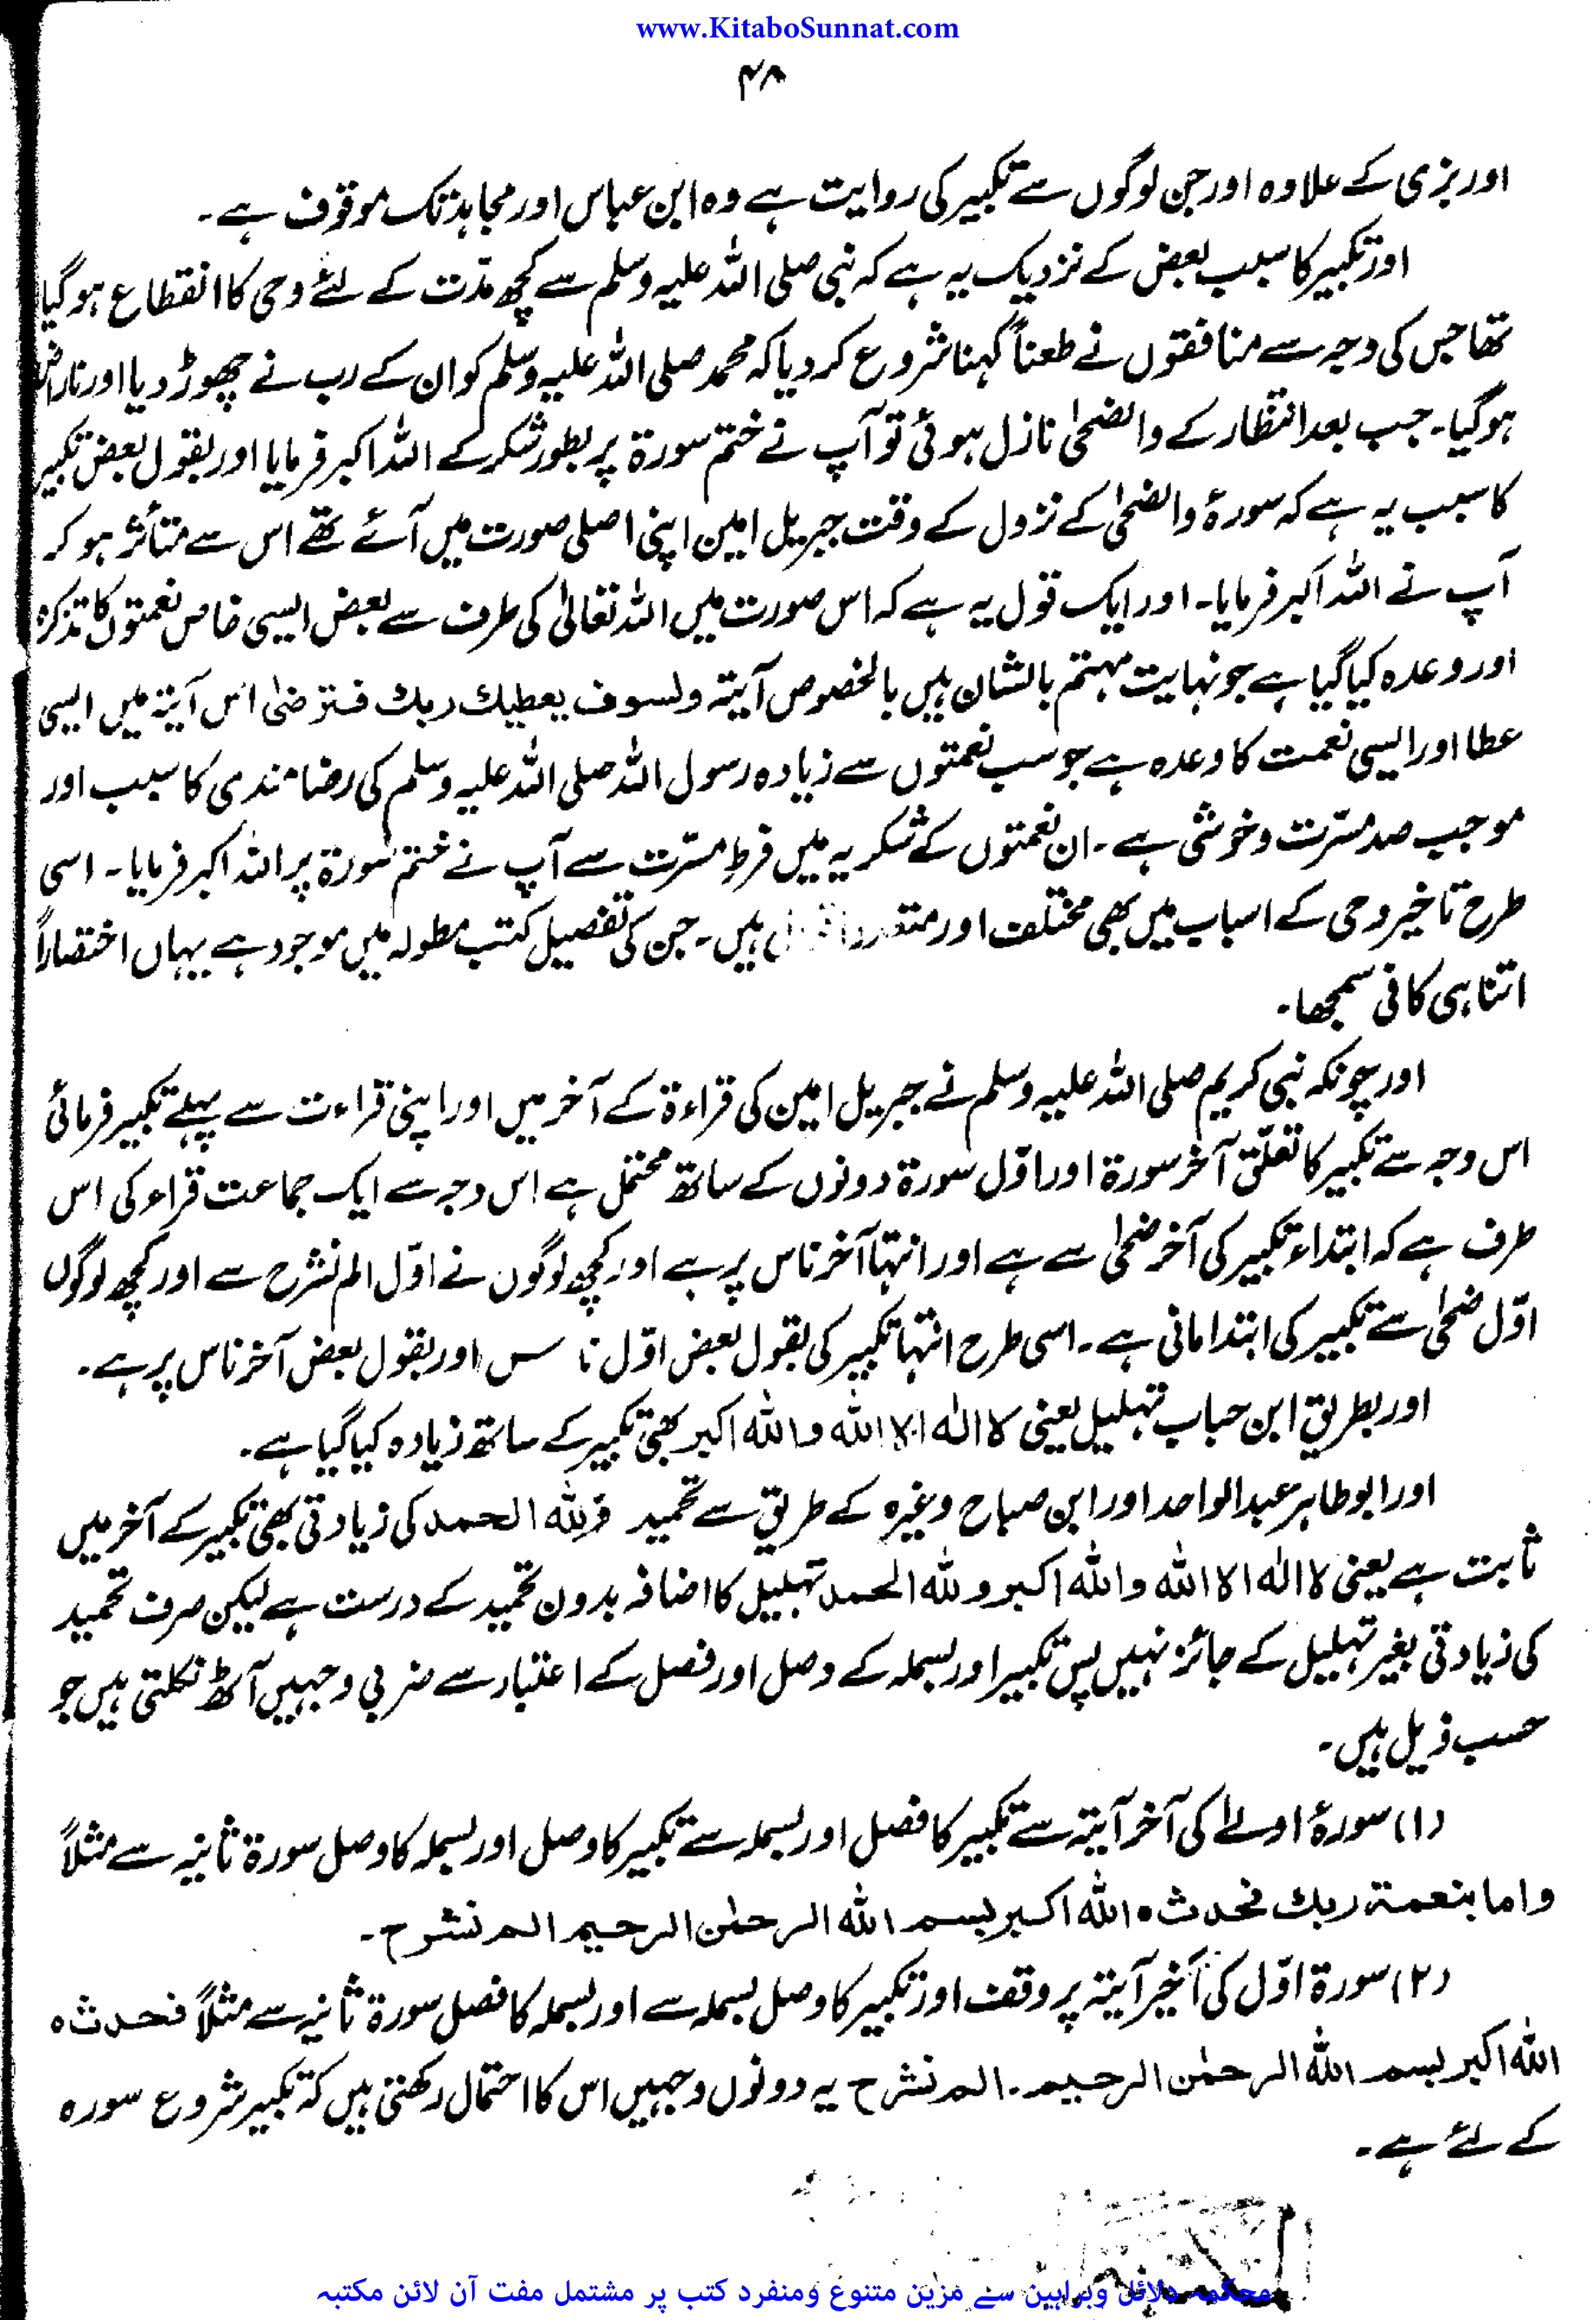 www.KitaboSunnat.com
۴۸
اور بزی کے علاوہ اور جن لوگوں سے تکبیر کی روایت ہے وہ ابن عباس اور مجاہد تک موقوف ہے۔
اور تکبیر کا سبب بعض کے نزدیک یہ ہے کہ نبی صلی اللہ علیہ وسلم سے کچھ مدّت کے لئے وحی کا انقطاع ہوگیا
تھا جس کی وجہ سے منافقوں نے طعناً کہنا شروع کردیا کہ محمد صلی اللہ علیہ وسلم کو ان کے رب نے چھوڑ دیا اور
ہوگیا۔ جب بعد انتظار کے والضحیٰ نازل ہوئی تو آپ نے ختم سورۃ پر بطور شکر کے اللہ اکبر فرمایا اور بقول بعض تکبیر
کا سبب یہ ہے کہ سورۂ والضحیٰ کے نزول کے وقت جبریل امین اپنی اصلی صورت میں آئے تھے اس سے متأثر ہو کر
آپ نے اللہ اکبر فرمایا۔ اور ایک قول یہ ہے کہ اس صورت میں اللہ تعالیٰ کی طرف سے بعض ایسی خاص نعمتوں کا تذکرہ
اور وعدہ کیا گیا ہے جو نہایت مہتم بالشان ہیں بالخصوص آیتہ ولسوف یعطیك ربك فترضیٰ اس آیتہ میں ایسی
عطا اور ایسی نعمت کا وعدہ ہے جو سب نعمتوں سے زیادہ رسول اللہ صلی اللہ علیہ وسلم کی رضامندی کا سبب اور
موجب صد مسرّت و خوشی ہے۔ ان نعمتوں کے شکریہ میں فرطِ مسرّت سے آپ نے ختم سورۃ پر اللہ اکبر فرمایا۔ اسی
طرح تاخیر وحی کے اسباب میں بھی مختلف اور ہیں۔ جن کی تفصیل کتب مطولہ میں موجود ہے یہاں اختصاراً
اتنا ہی کافی سمجھا۔
اور چونکہ نبی کریم صلی اللہ علیہ وسلم نے جبریل امین کی قراءۃ کے آخر میں اور اپنی قراءت سے پہلے تکبیر فرمائی
اس وجہ سے تکبیر کا تعلّق آخر سورۃ اور اوّل سورۃ دونوں کے ساتھ محتمل ہے اس وجہ سے ایک جماعت قراء کی اس
طرف ہے کہ ابتداء تکبیر کی آخر ضحیٰ سے ہے اور انتہا آخر ناس پر ہے اور کچھ لوگوں نے اوّل الم نشرح سے اور کچھ لوگوں
اوّل ضحیٰ سے تکبیر کی ابتدا مانی ہے۔ اسی طرح انتہا تکبیر کی بقول بعض اوّل ناس اور بقول بعض آخر ناس پر ہے۔
اور بطریق ابن حباب تہلیل یعنی لا الٰہ الا اللہ واللہ اکبر بھی تکبیر کے ساتھ زیادہ کیا گیا ہے۔
اور ابوطاہر عبدالواحد اور ابن صباح وغیرہ کے طریق سے تحمید وللہ الحمد کی زیادتی بھی تکبیر کے آخر میں
ثابت ہے یعنی لا الٰہ الا اللہ واللہ اکبر وللہ الحمد تہلیل کا اضافہ بدون تحمید کے درست ہے لیکن صرف تحمید
کی زیادتی بغیر تہلیل کے جائز نہیں پس تکبیر اور بسملہ کے وصل اور فصل کے اعتبار سے ضربی وجہیں آٹھ نکلتی ہیں جو
حسب ذیل ہیں۔
(۱) سورۂ اولےٰ کی آخر آیتہ سے تکبیر کا فصل اور بسملہ سے تکبیر کا وصل اور بسملہ کا وصل سورۃ ثانیہ سے مثلاً
واما بنعمة ربك فحدث ٥ اللہ اکبر بسم اللہ الرحمٰن الرحیم الم نشرح۔
(۲) سورۃ اوّل کی آخیر آیتہ پر وقف اور تکبیر کا وصل بسملہ سے اور بسملہ کا فصل سورۃ ثانیہ سے مثلاً فحدث ٥
اللہ اکبر بسم اللہ الرحمٰن الرحیم۔ الم نشرح یہ دونوں وجہیں اس کا احتمال رکھتی ہیں کہ تکبیر شروع سورہ
کے لئے ہے۔
محکمہ دلائل وبراہین سے مزین متنوع ومنفرد کتب پر مشتمل مفت آن لائن مکتبہ